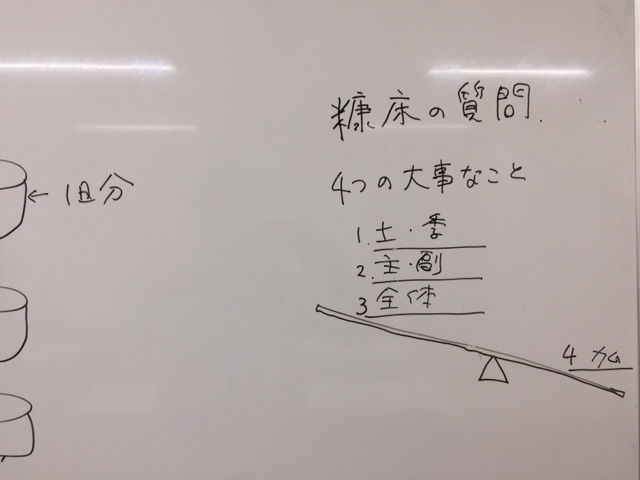 糠床の質問.
← 1日分
4つの大事なこと
1. 土・季
2. 主・副
3 全体
4 カム